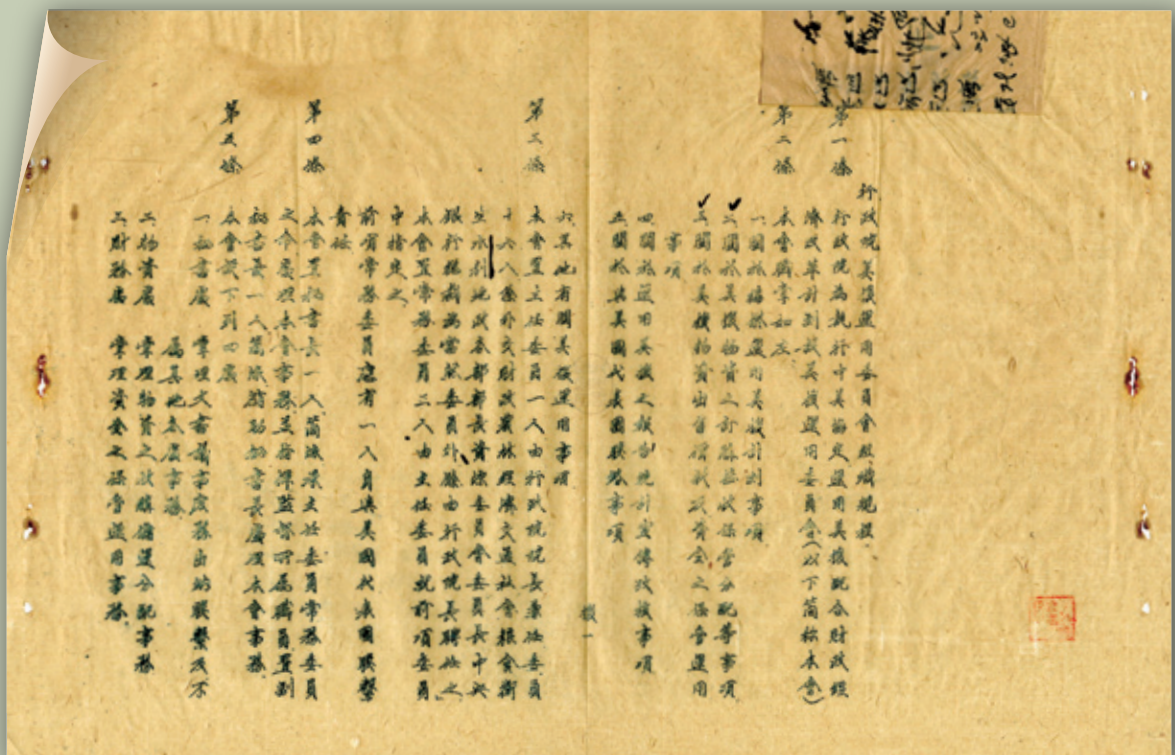 行政院美援運用委員會組織規程
第一條 行政院為執行中美協定運用美援配合財政經
濟改革計劃設美援運用委員會(以下簡稱本會)
第二條 本會職掌如左
一關於編擬運用美援計劃事項
二關於美援物資之訂購接收保管分配等事項
三關於美援物資出售所得資金之保管運用
事項
四關於運用美援之報告統計宣傳考核事項
五關於與美國代表團聯絡事項
六其他有關美援運用事項
第三條 本會置主任委員一人由行政院院長兼任委員
十六人除外交財政農林經濟交通社會糧食衛
生水利地政各部部長資源委員會委員長中央
銀行總裁為當然委員外餘由行政院長聘任之
本會置常務委員二人由主任委員就前項委員
中指定之
前項常務委員應有一人負與美國代表團聯繫
責任
第四條 本會置秘書長一人簡派承主任委員常務委員
之命處理本會事務並指揮監督所屬職員置副
秘書長一人簡派襄助秘書長處理本會事務
第五條 本會設下列四處
一秘書處 掌理文書議事庶務出納聯繫及不
屬其他各處事務
二物資處 掌理物資之收購儲運分配事務
三財務處 掌理資金之保管運用事務